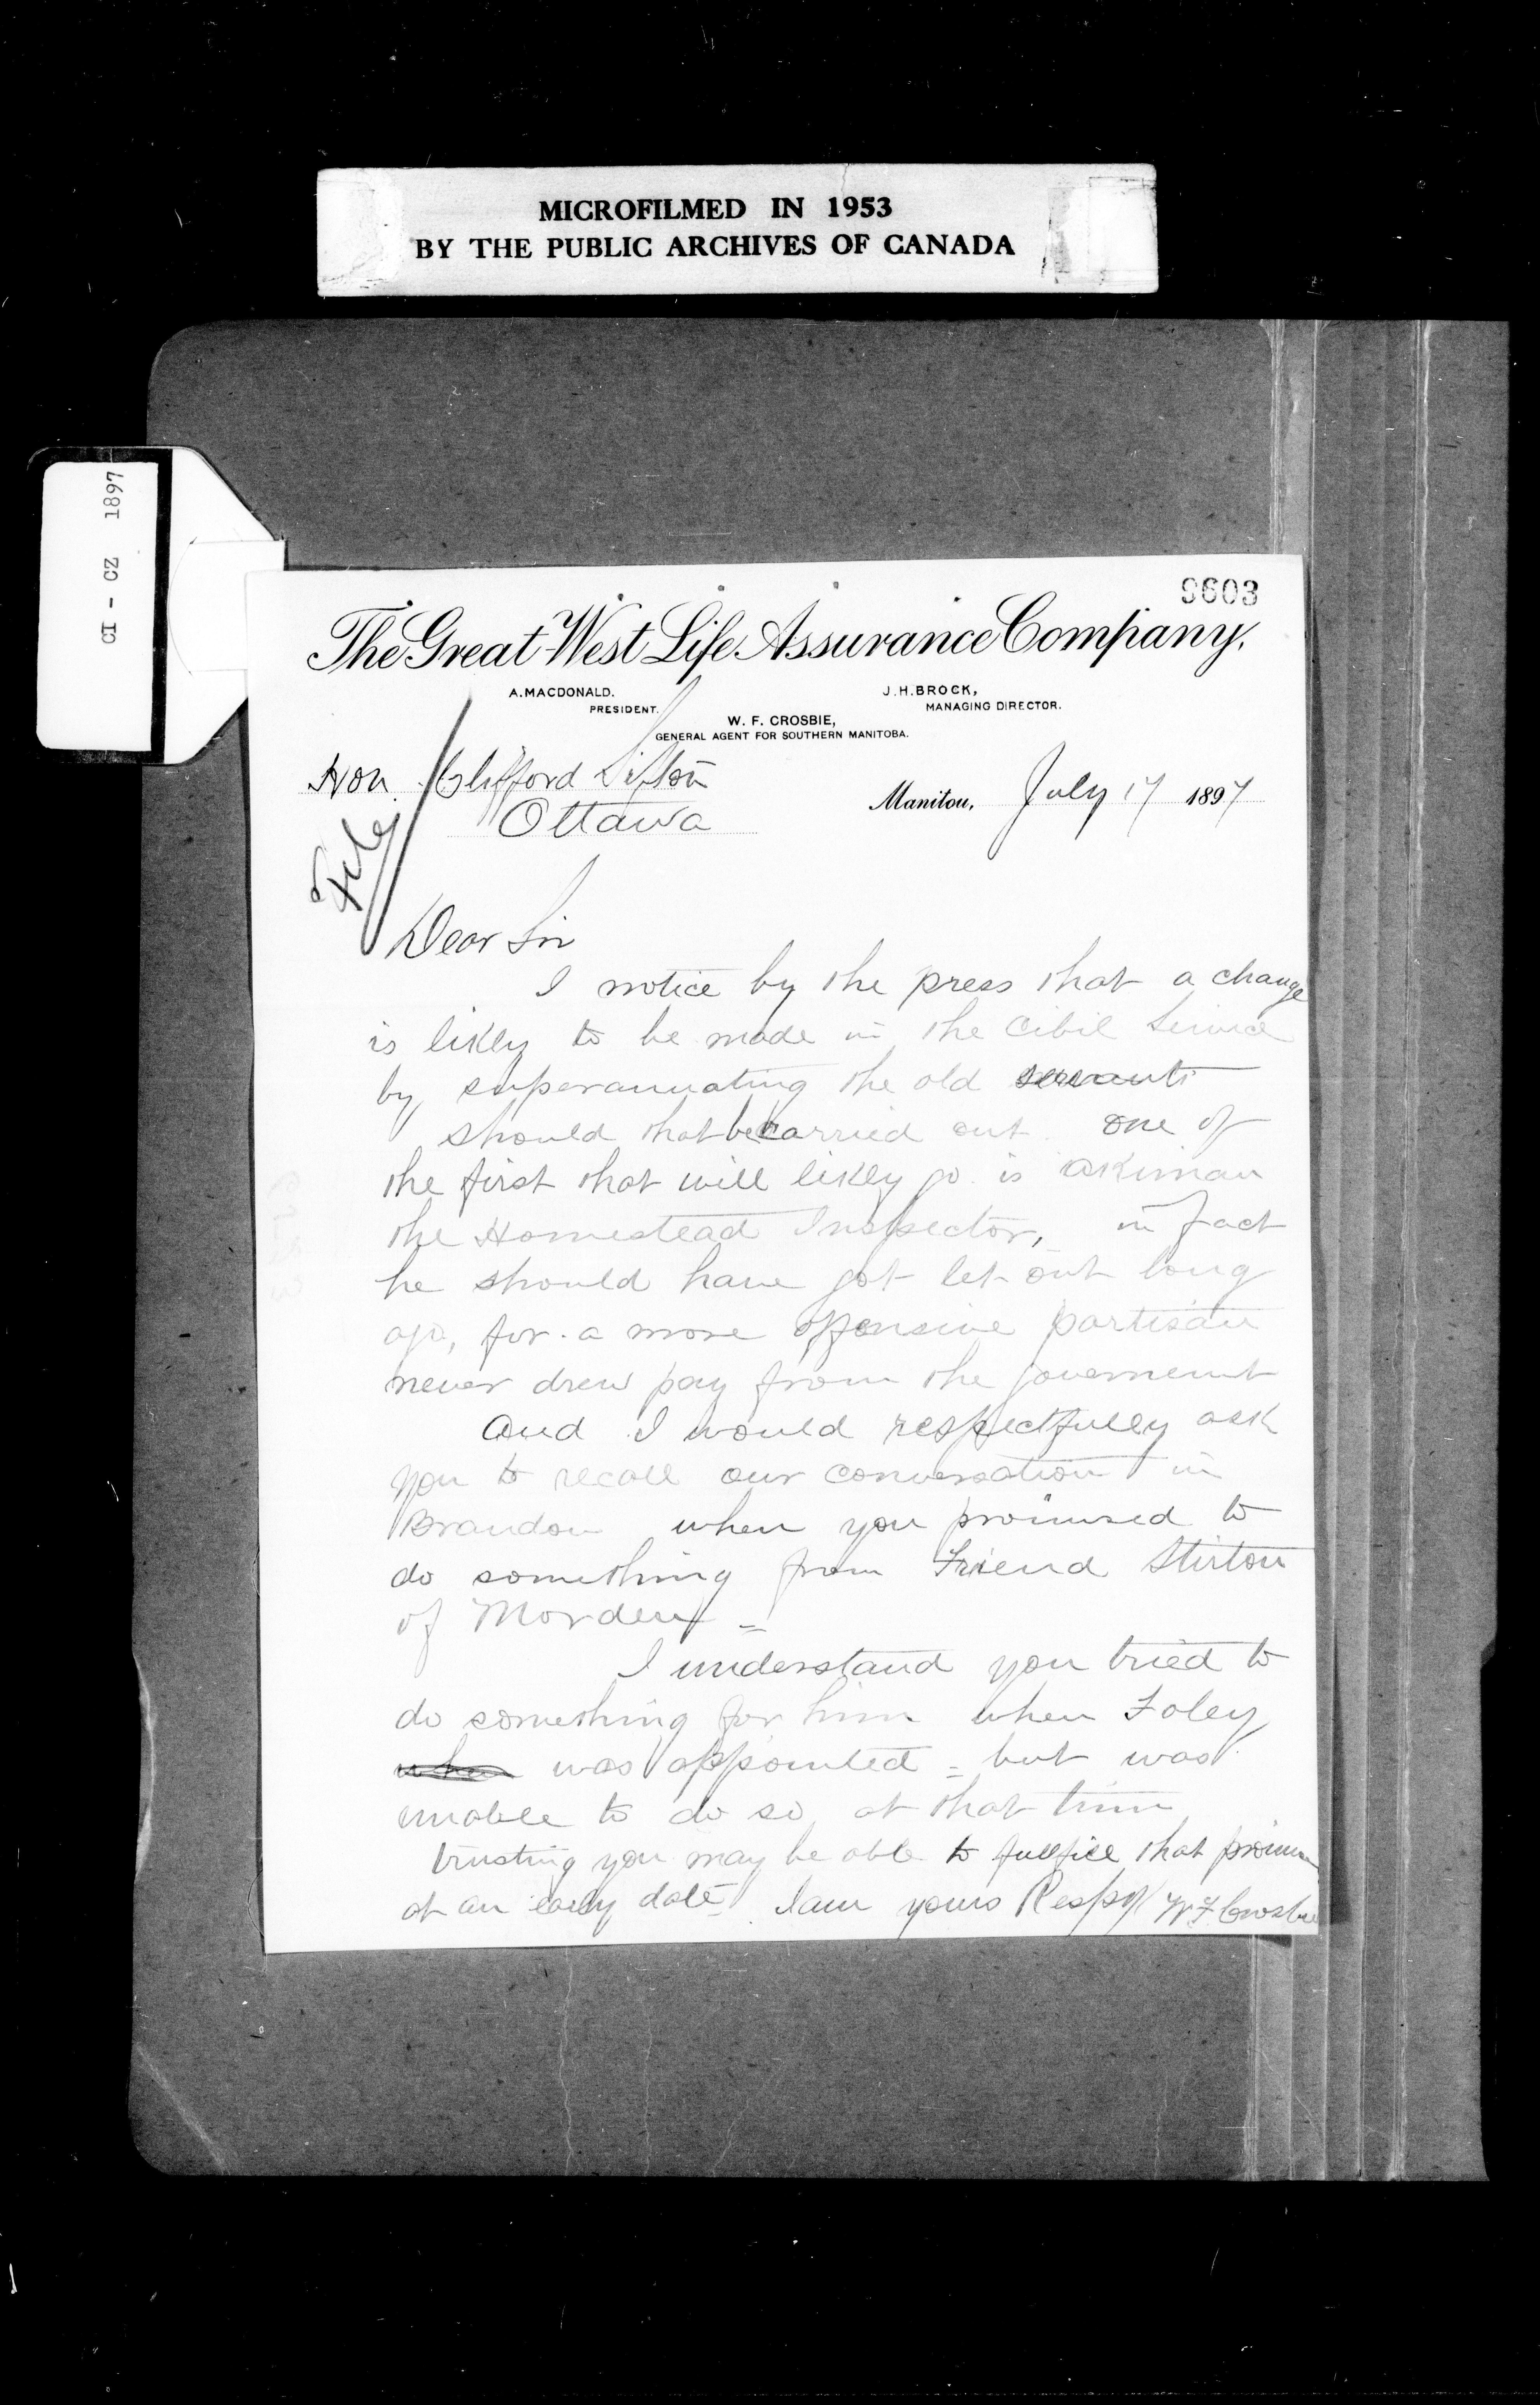 MICROFILMED IN 1953
BY THE PUBLIC ARCHIVES OF CANADA
CI - CZ 1897
9603
The Great West Life Assurance Company.
A. MACDONALD.
PRESIDENT.
J. H. BROCK,
MANAGING DIRECTOR.
W. F. CROSBIE,
GENERAL AGENT FOR SOUTHERN MANITOBA.
Hon. Clifford Sifton
Ottawa
Manitou, July 17 1897
File
Dear Sir
I notice by the press that a change
is likly to be made in the Cibil Service
by superannuating the old servants
should that be carried out. one of
the first that will likly go is Akiman
the Homestead Inspector, in fact
he should have got let out long
ago, for a more offensive partisan
never drew pay from the government
And I would respectfully ask
you to recall our conversation in
Brandon when you promised to
do something from Friend Stirton
of Morden =
I understand you tried to
do something for him when Foley
when was appointed = but was
unable to do so at that time
trusting you may be able to fullfill that promise
at an early date I am yours Respy W F Crosbie